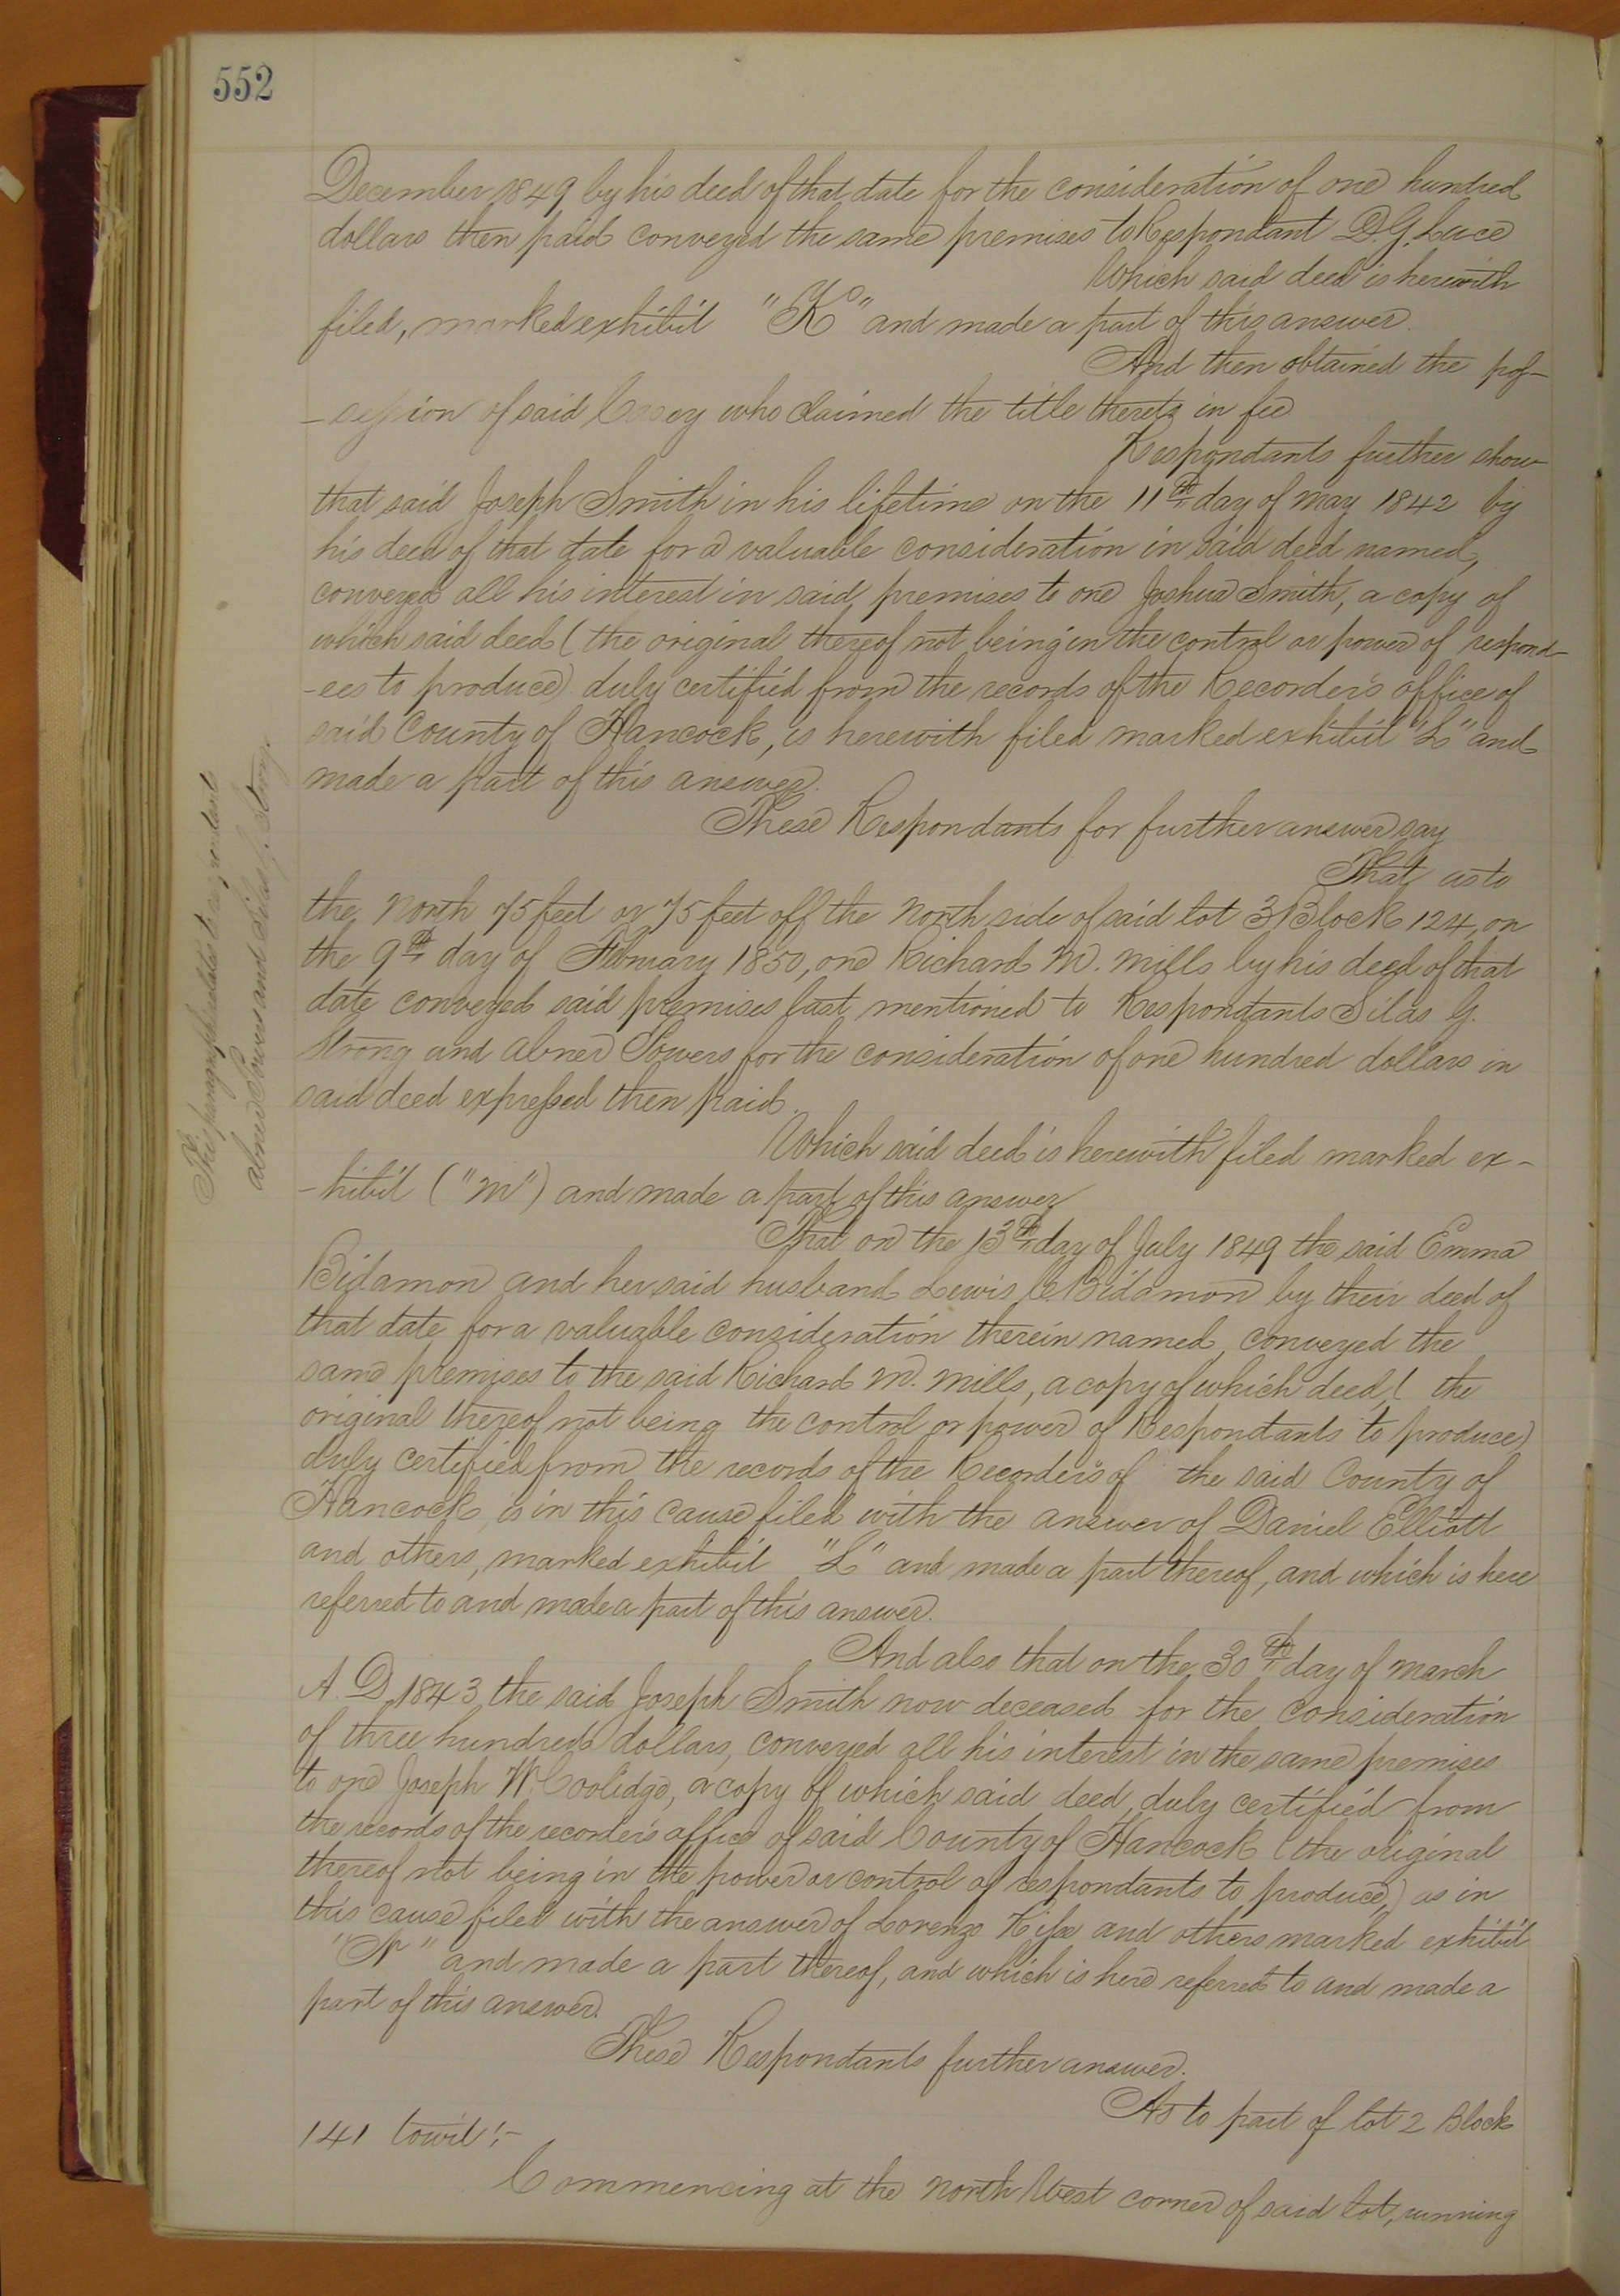 552
December 1849 by his deed of that date for the consideration of one hundred
dollars then paid conveyed the same premises to Respondant D. G. Luce
Which said deed is herewith
filed, marked exhibit "K" and made a part of this answer.
And then obtained the pos-
-session of said Casey who claimed the title thereto in fee
Respondants further show
that said Joseph Smith in his lifetime on the 11th day of May 1842 by
his deed of that date for a valuable consideration in said deed named,
conveyed all his interest in said premises to one Joshua Smith, a copy of
which said deed (the original thereof not being in the control or power of respond-
-ees to produce) duly certified from the records of the Recorder's office of
said County of Hancock, is herewith filed marked exhibit "L" and
made a part of this answer.
These Respondants for further answer say
That as to
the North 75 feet or 75 feet off the North side of said lot 3 Block 124, on
the 9th day of February 1850, one Richard M. Mills by his deed of that
date conveyed said premises last mentioned to Respondants Silas G.
Strong and Abner Powers for the consideration of one hundred dollars in
said deed expressed then paid.
Which said deed is herewith filed marked ex-
-hibit ("M") and made a part of this answer
That on the 13th day of July 1849 the said Emma
Bidamon and her said husband Lewis C. Bidamon by their deed of
that date for a valuable consideration therein named, conveyed the
same premises to the said Richard M. Mills, a copy of which deed, ( the
original thereof not being the control or power of Respondants to produce)
duly certified from the records of the Recorder's of the said County of
Hancock, is in this cause filed with the answer of Daniel Elliott
and others, marked exhibit "L" and made a part thereof, and which is here
referred to and made a part of this answer.
And also that on the 30th day of March
A. D. 1843, the said Joseph Smith now deceased for the consideration
of three hundred dollars, conveyed all his interest in the same premises
to one Joseph W. Coolidge, a copy of which said deed, duly certified from
the records of the recorder's office of said County of Hancock (the original
thereof not being in the power or control of respondants to produce,) as in
this cause filed with the answer of Lorenzo and others marked exhibit
"N" and made a part thereof, and which is here referred to and made a
part of this answer.
These Respondants further answer.
As to part of lot 2 Block
141 towit:-
Commencing at the North West corner of said lot, running
This paragraph relates to respondants
Abner Powers and Silas G. Strong.